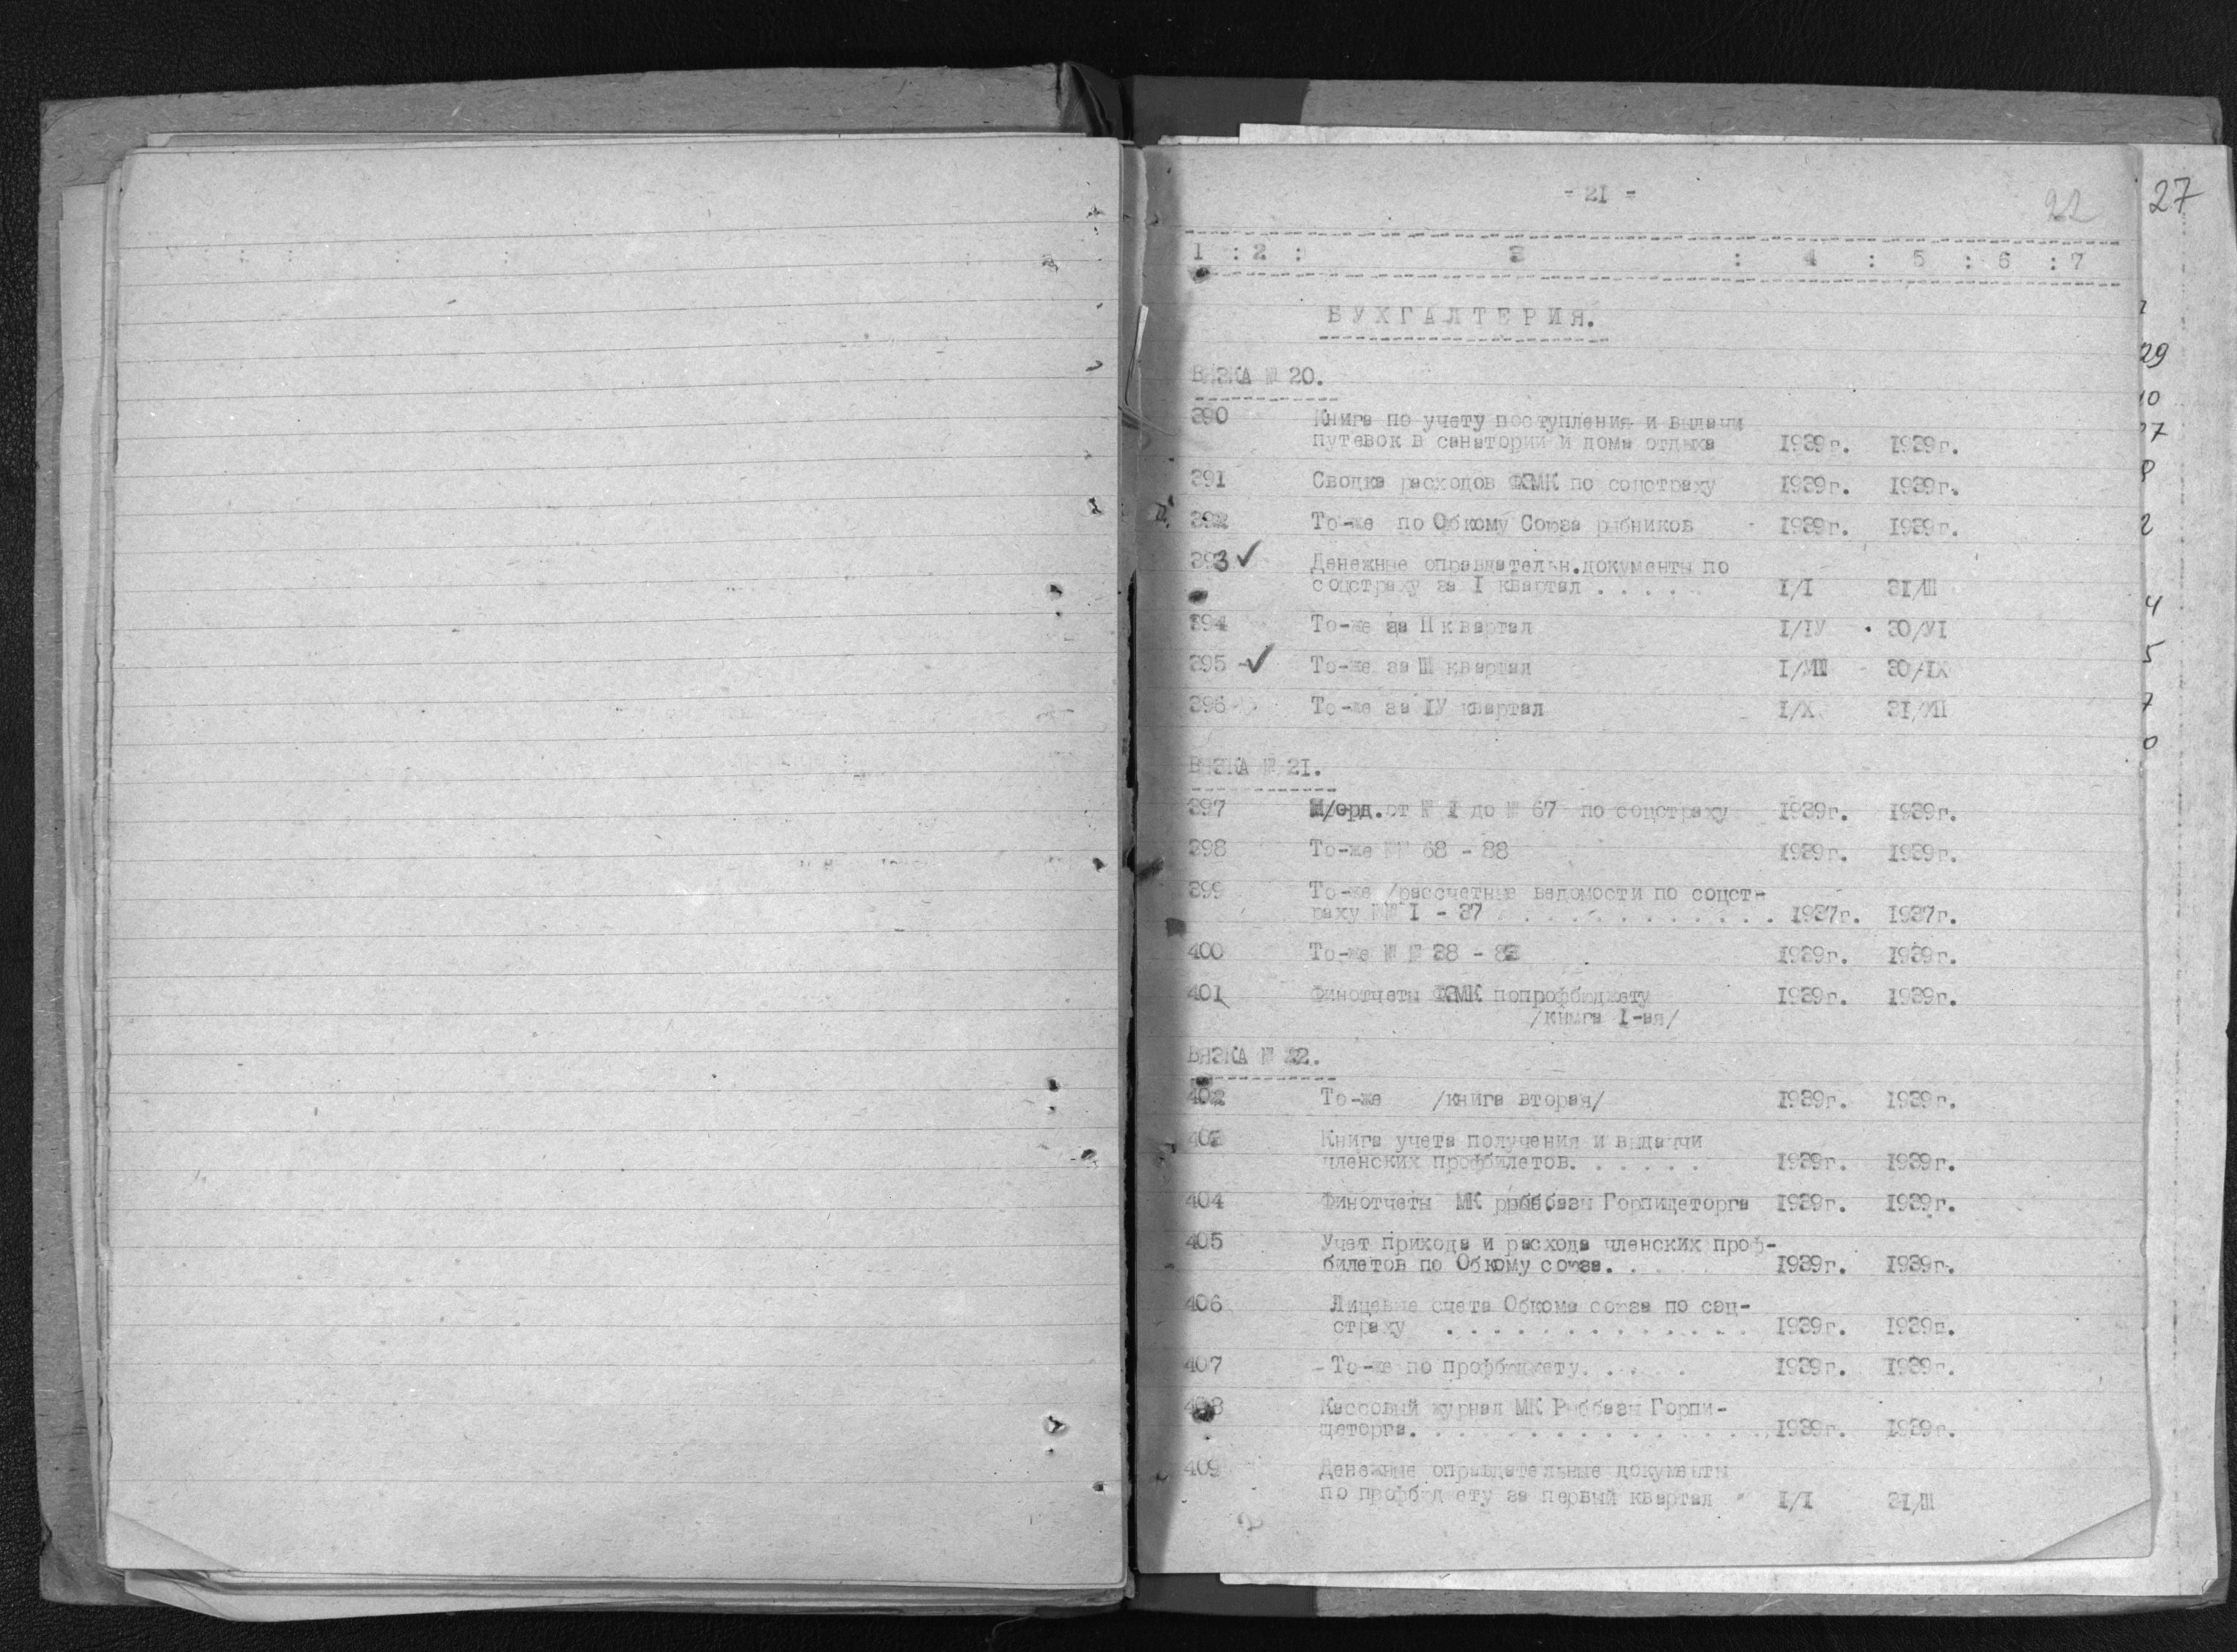 - 21 -
22
27
1 : 2 : 3 : 4 : 5 : 6 : 7
БУХГАЛТЕРИЯ.
ВЯЗКА № 20.
390 Книга по учету поступления и выдачи
путевок в санатории и дома отдыха 1939г. 1939г.
391 Сводка расходов ФЗМК по соцстраху 1939г. 1939г.
392 То-же по Обкому Союза рыбников 1939г. 1939г.
393 ✓ Денежные оправдательн.документы по
соцстраху за I квартал . . . . . I/I 31/Ш
394 То-же за II квартал I/IУ 30/УI
395 -✓ То-же за Ш квартал I/УП 30/IX
396 То-же за IУ квартал I/X 31/ХП
ВЯЗКА № 21.
397 М/орд.от № I до № 67 по соцстраху 1939г. 1939г.
398 То-же №№ 68 - 88 1939г. 1939г.
399 То-же /рассчетные ведомости по соцст-
раху №№ I - 37 . . . . . . . . . . . . 1937г. 1937г.
400 То-же № № 38 - 83 1939г. 1939г.
401 Финотчеты ФЗМК попрофбюджету 1939г. 1939г.
/книга I-ая/
ВЯЗКА № 22.
402 То-же /книга вторая/ 1939г. 1939г.
403 Книга учета получения и выдачи
членских профбилетов. . . . . . 1939г. 1939г.
404 Финотчеты МК рыббазы Горпищеторга 1939г. 1939г.
405 Учет прихода и расхода членских проф-
билетов по Обкому союза. . . . 1939г. 1939г.
406 Лицевые счета Обкома союза по соц-
страху . . . . . . . . . . . . . 1939г. 1939г.
407 -То-же по профбюджету. . . . . 1939г. 1939г.
408 Кассовый журнал МК Рыббазы Горпи-
щеторга. . . . . . . . . . . . . . . 1939г. 1939г.
409 Денежные оправдательные документы
по профбюджету за первый квартал I/I 31/Ш
29
10
7
8
2
4
5
7
0